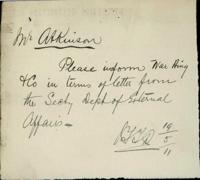 Mr Atkinson
Please inform War Hing
&Co in terms of letter from
the Secty Dept of External
Affairs—
19/5/11